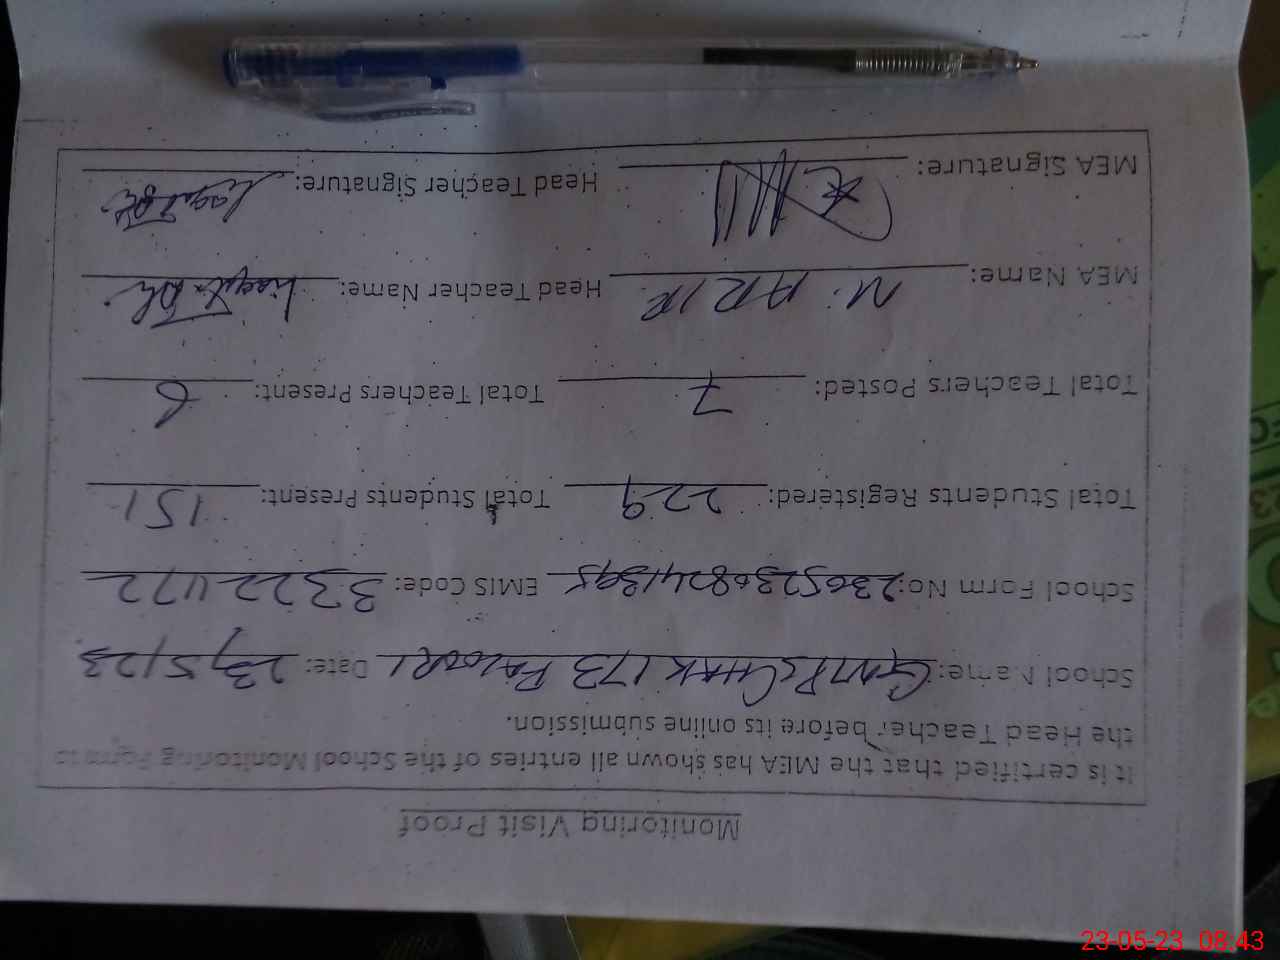 Monitoring Visit Proof
It is certified that the MEA has shown all entries of the School Monitoring Form to
the Head Teacher before its online submission.
School Name: GMPS CHAK 173 Date: 23/5/23
School Form No: EMIS Code: 33221172
Total Students Registered: 229 Total Students Present: 151
Total Teachers Posted: 7 Total Teachers Present: 6
MEA Name: Head Teacher Name:
MEA Signature: Head Teacher Signature:
23-05-23 08:43